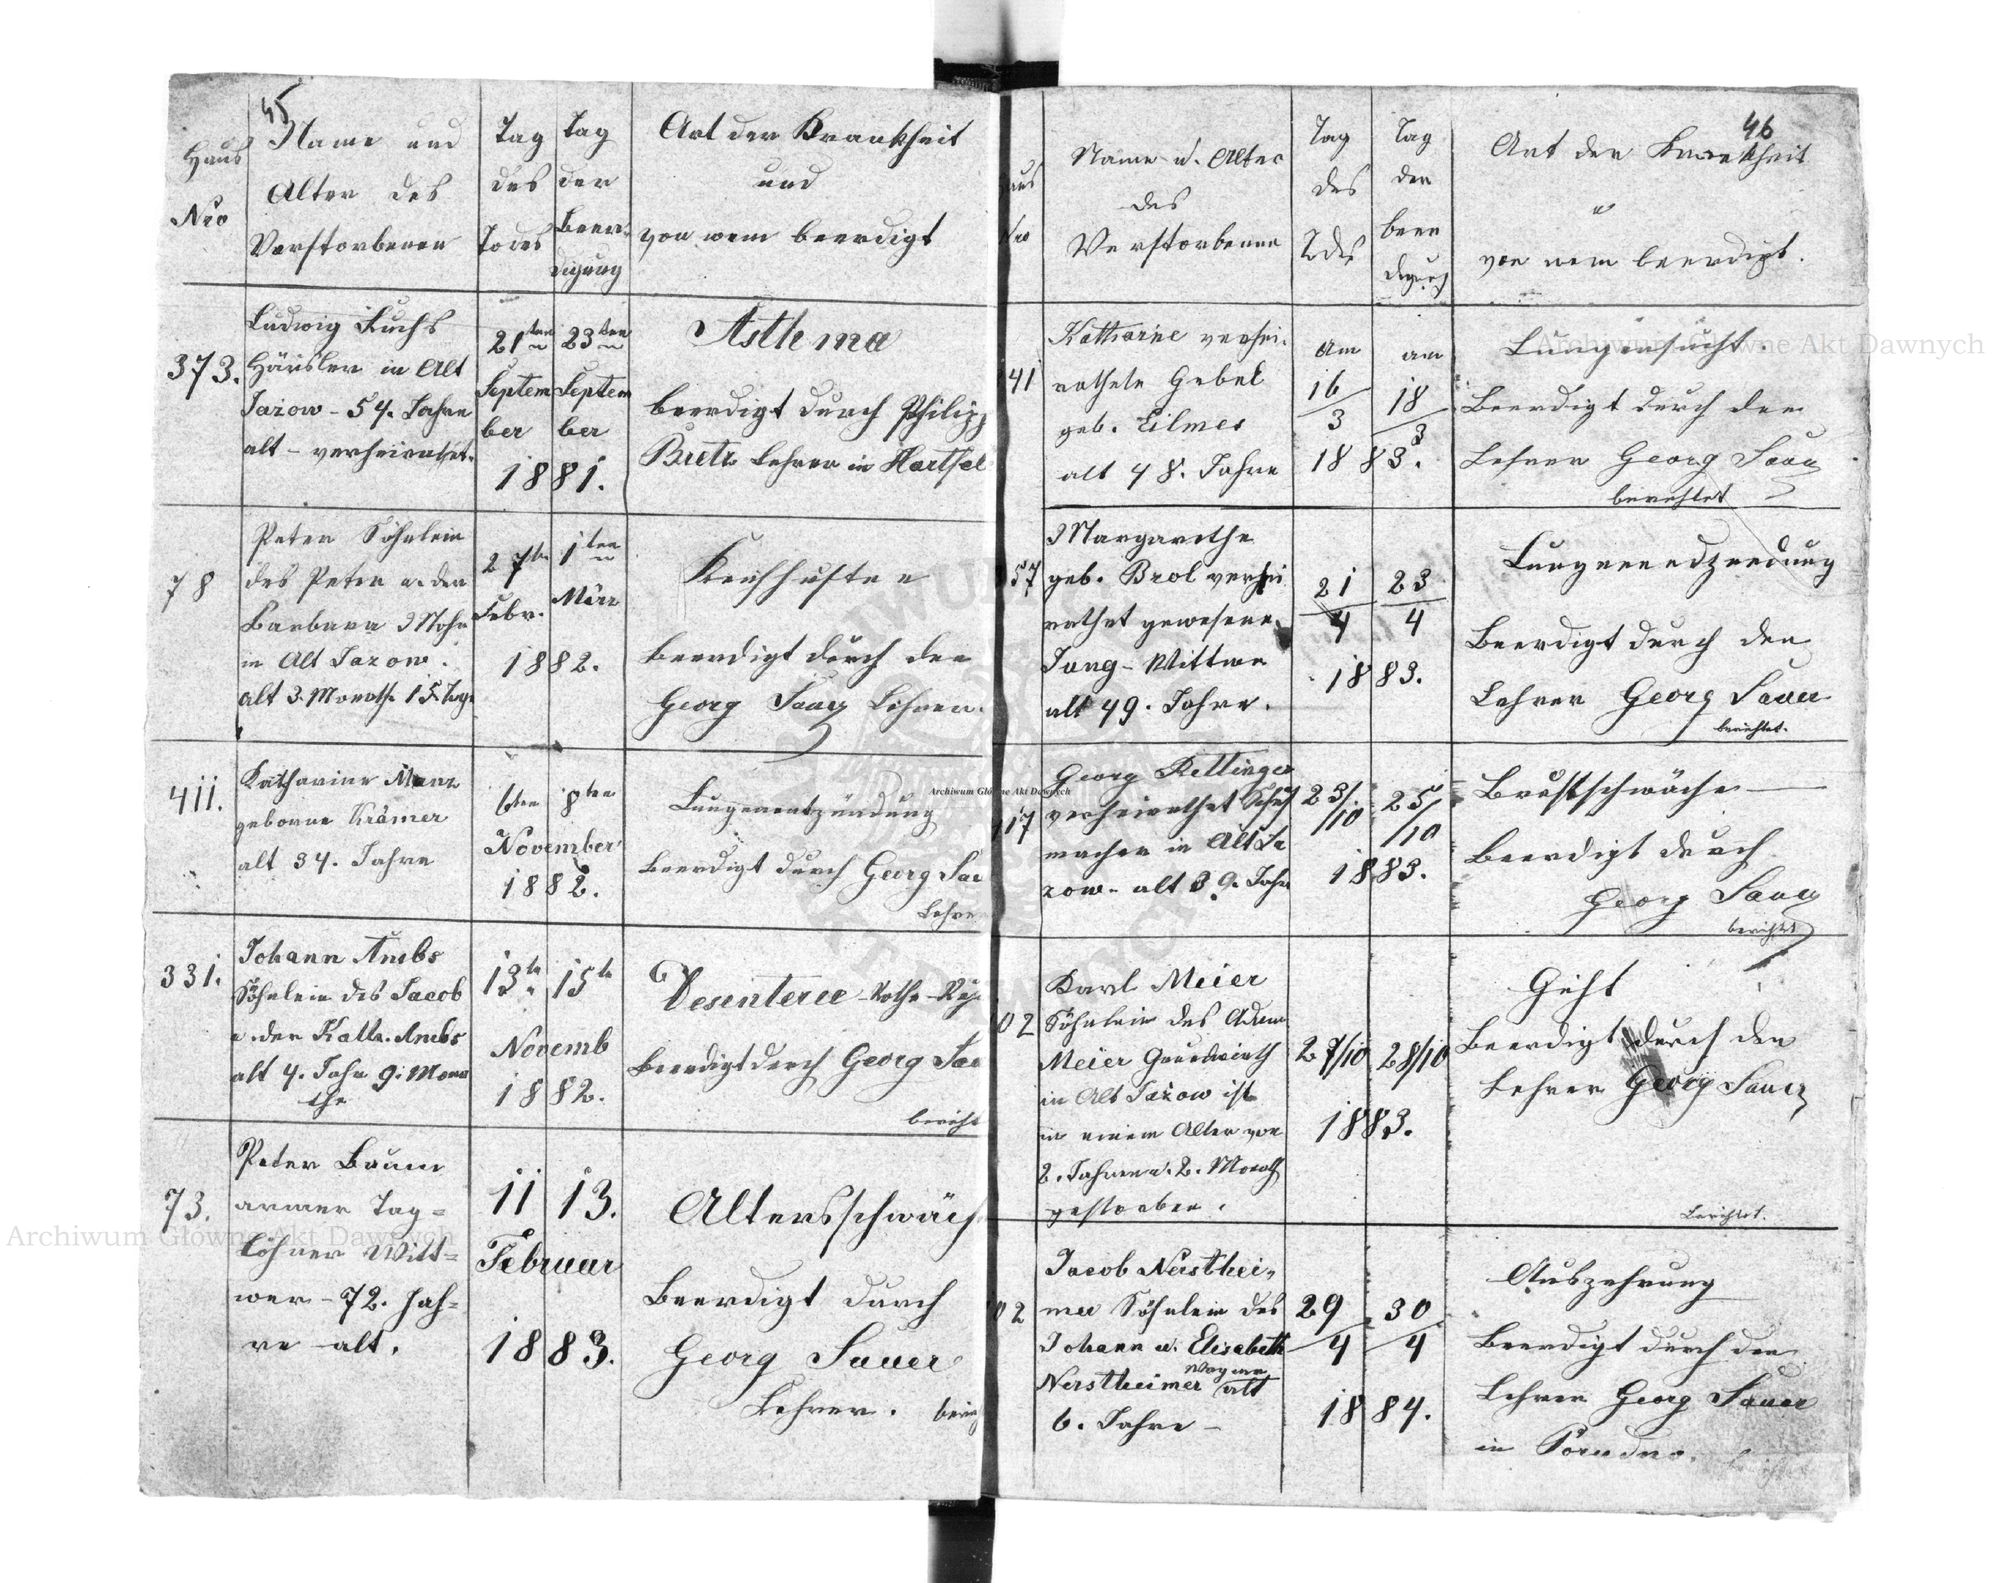 45
Haus
Nro
Name und
Alter des
Verstorbenen
Tag
des
Todes
Tag
der
Beer-
digung
Art der Krankheit
und
von wem beerdigt
373.
Ludwig Fuchs
Häusler in Alt
Jazow - 54. Jahre
alt - verheirathet.
21ten
Septem
ber
23ten
Septem
ber
1881.
Asthma
beerdigt durch Philipp
Butz Lehrer in Hartfel
78
Peter Söhnlein
des Peter u. der
Barbara Mohr
in Alt Jazow.
alt 3. Monath. 15. Tage
27te
Febr.
1ten
März
1882.
Keuchhusten
beerdigt durch den
Georg Sauer Lehrer.
411.
Katharine Manz
geborne Krämer
alt 34. Jahre
6ten 8ten
November
1882.
Lungenentzündung
beerdigt durch Georg Sau
Lehrer
331.
Johann Ambs
Söhnlein des Jacob
u. der Kath. Ambs
alt 4. Jahr 9. Mona
the
13te 15te
Novemb
1882.
Desenterie - Rothe - Ruh
Beerdigt durch Georg Sau
bericht
73.
Peter Baum
armer Tag=
löhner Witt=
wer - 72. Jah=
re alt.
11 13.
Februar
1883.
Altersschwäch
Beerdigt durch
Georg Sauer
Lehrer.
46
aus
Nro
Name u. Alter
des
Verstorbenen
Tag
des
Todes
Tag
der
beer
digung
Art der Krankheit
u
von wem beerdigt.
141
Katharine verhei-
rathete Gebel
geb. Eilmes
alt 48. Jahre
am
16/3
am
18/3
1883.
Lungensucht.
Beerdigt durch den
Lehrer Georg Sauer
berichtet
57
Margarethe
geb. Brol verhei
rathet gewesene
Jung - Wittwe
alt 49. Jahre.
21/4
23/4
1883.
Lungenendzendung
Beerdigt durch den
Lehrer Georg Sauer
berichtet.
117
Georg Rettinger
verheirathet Schuh
macher in Alt Ja
zow - alt 39. Jahr
23/10
25/10
1883.
Brustschwäche
Beerdigt durch
Georg Sauer
berichtet
02
Karl Meier
Söhnlein des Adam
Meier Grundwirth
in Alt Jazow ist
in einem Alter von
2. Jahren u. 2. Monath
gestorben.
27/10 28/10
1883.
Gicht
Beerdigt durch den
Lehrer Georg Sauer
berichtet.
02
Jacob Nersthei-
mer Söhnlein des
Johann u. Elisabeth
Wagner
Nerstheimer alt
6. Jahre -
29/4
30/4
1884.
Auszehrung
Beerdigt durch den
Lehrer Georg Sauer
in Porudno.
Archiwum Główne Akt Dawnych
Archiwum Główne Akt Dawnych
Archiwum Główne Akt Dawnych